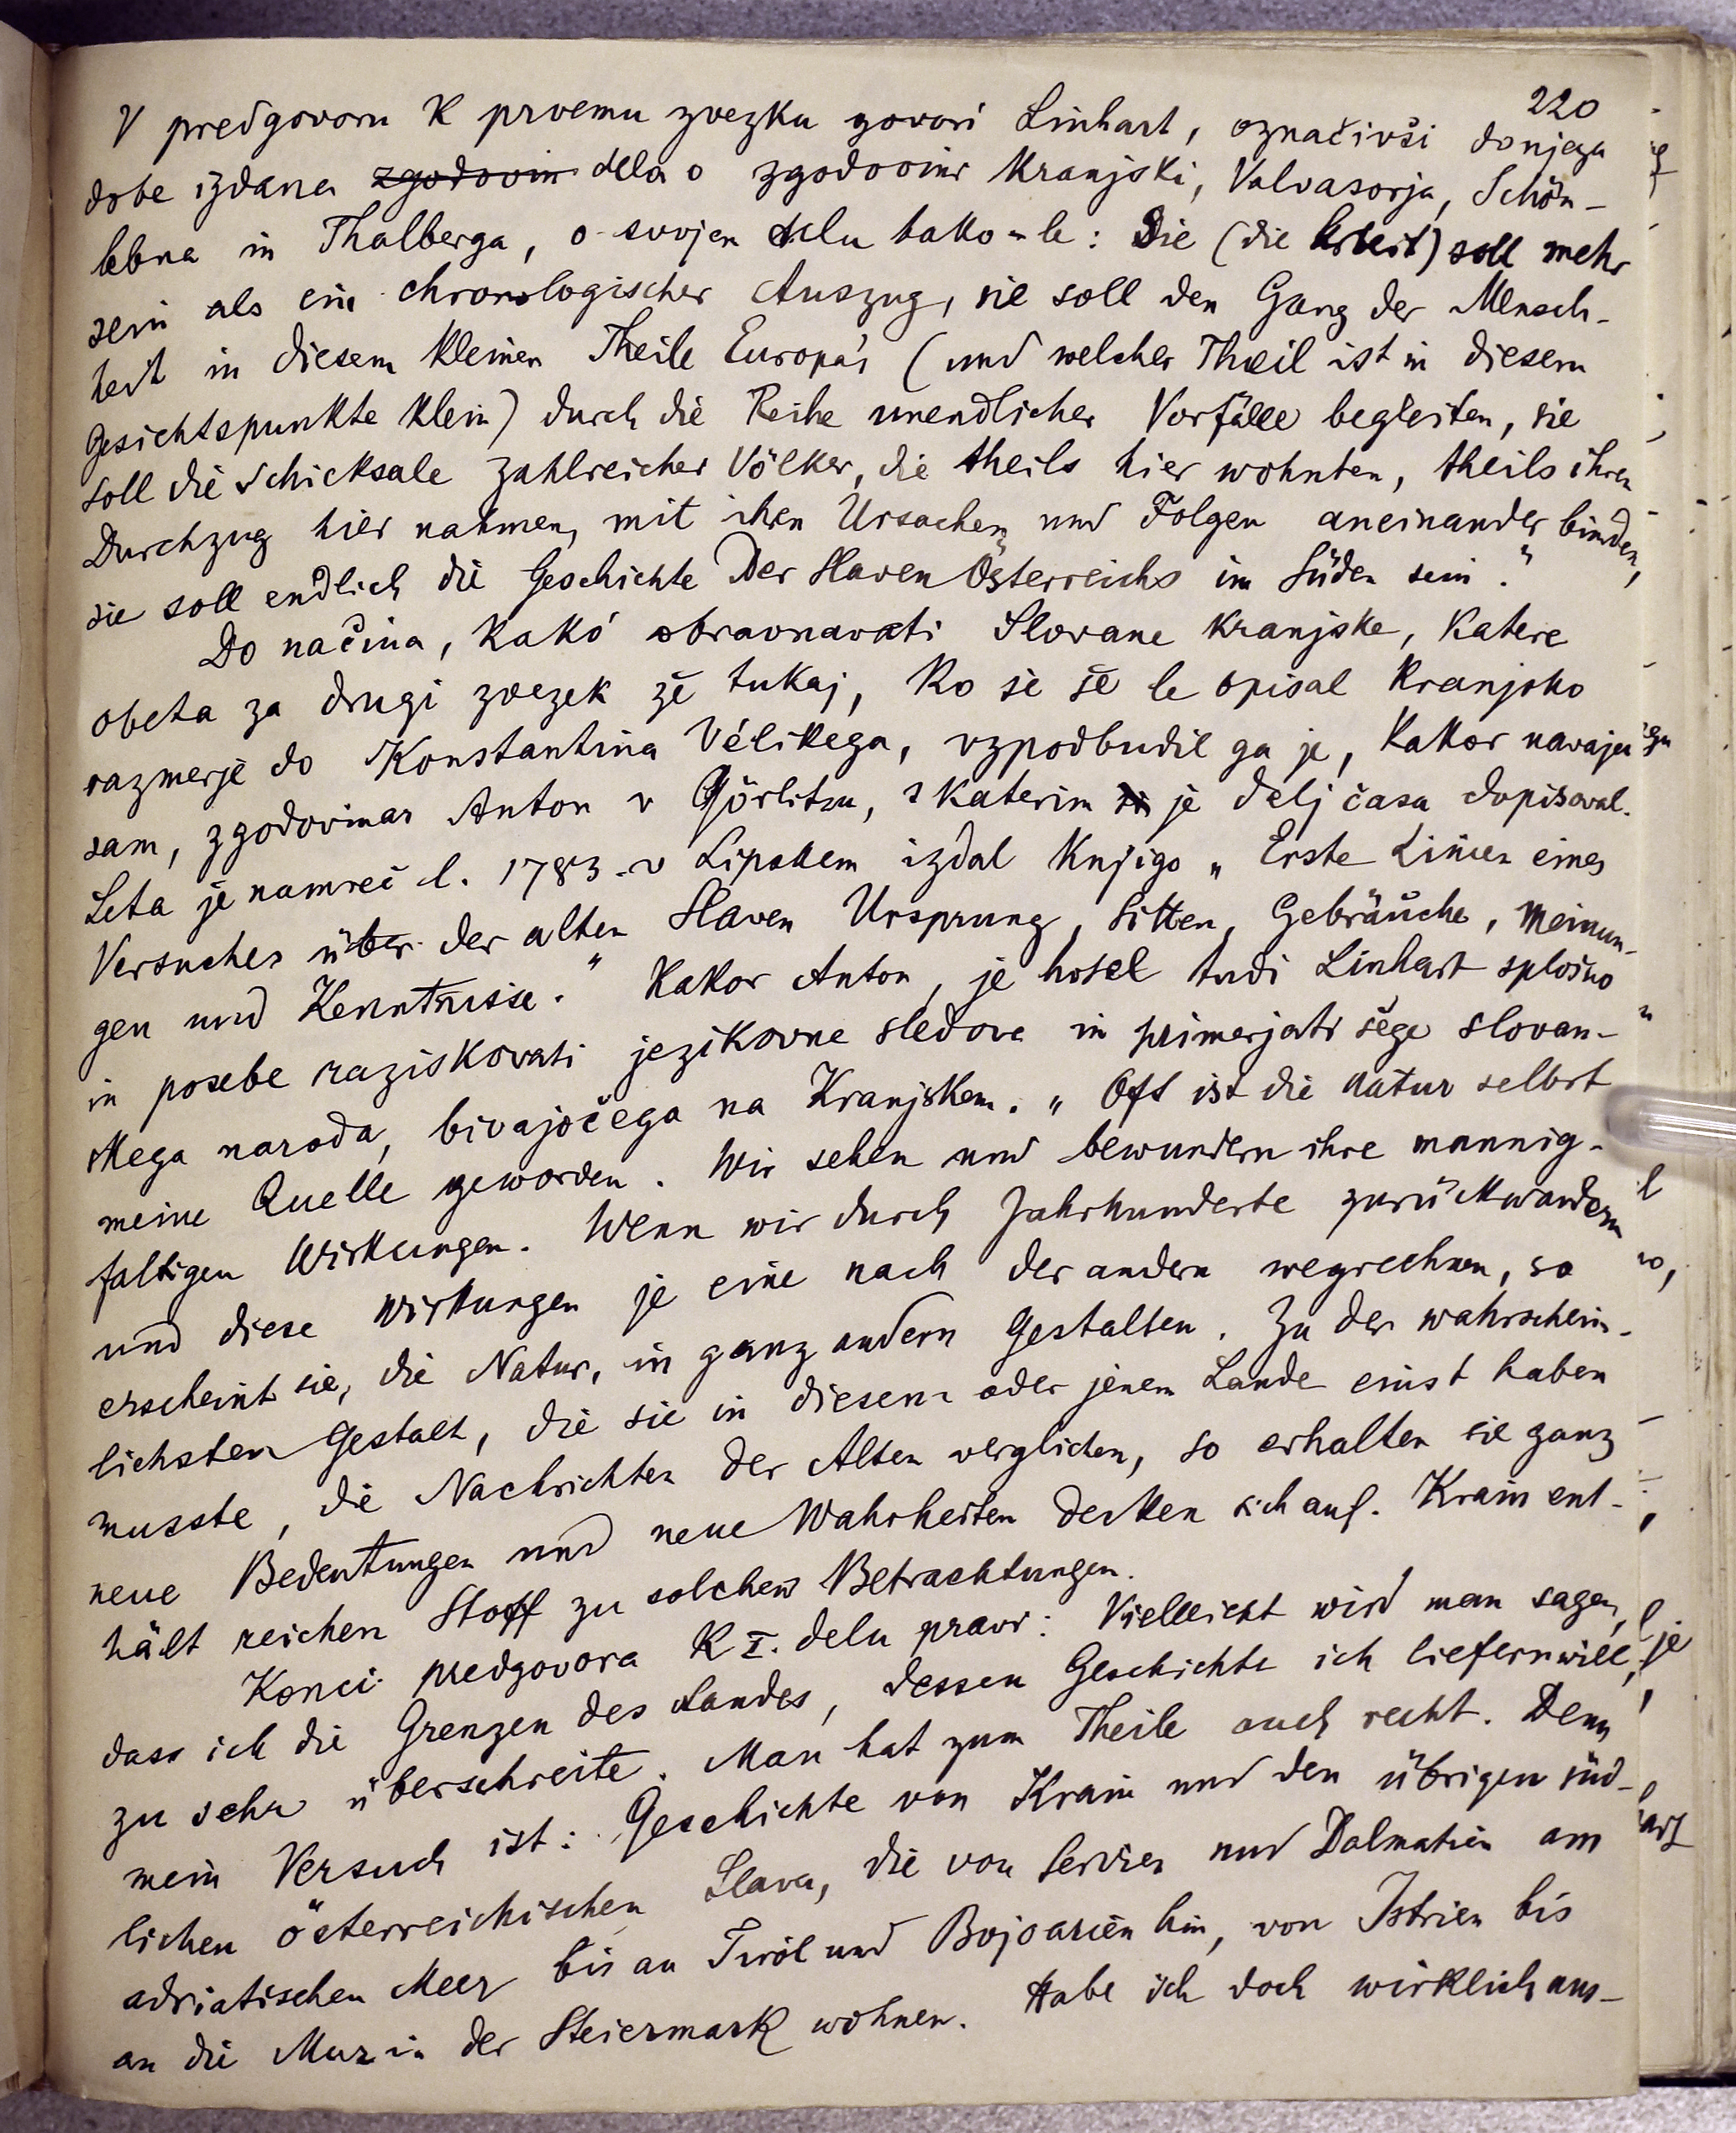 220
V predgovoru k prvemu zvezku govori Linhart, označivši donjega
dobe izdana zgodovin dela o zgodovini Kranjski, Valvasorja, Schön-
lebna in Thalberga, o svojem delu tako-le: Sie (die Arbeit) soll mehr
sein als ein chronologischer Auszug, sie soll den Gang der Mensch-
heit in diesem kleinen Theile Europa's (und welcher Theil ist in diesem
Gesichtspunkte klein) durch die Reihe unendlicher Vorfälle begleiten, sie
soll die Schicksale zahlreicher Völker, die theils hier wohnten, theils ihren
Durchzug hier nahmen, mit ihren Ursachen und Folgen aneinander binden,
sie soll endlich die Geschichte der Slaven Österreichs im Süden sein."
Do načina, kako obravnavati Slovane kranjske, katere
obeta za drugi zvezek že tukaj, ko je še le opisal kranjsko
razmerje do Konstantina Velikega, vzpodbudil ga je, kakor navaja
sam, zgodovinar Anton v Görlitzu, s katerim si je delj časa dopisoval.
Leta je namreč l. 1783. v Lipskem izdal knjigo „Erste Linien eines
Versuches über der alten Slaven Ursprung, Sitten, Gebräuche, Meinun-
gen und Kenntnisse." Kakor Anton, je hotel tudi Linhart splošno
in posebe raziskovati jezikovne sledove in primerjati šege slovan-
skega naroda, bivajočega na Kranjskem. „Oft ist die Natur selbst
meine Quelle geworden. Wir sehen und bewundern ihre mannig-
faltigen Wirkungen. Wenn wir durch Jahrhunderte zurückwandern
und diese Wirkungen je eine nach der andern wegrechnen, so
erscheint sie, die Natur, in ganz andern Gestalten. Zu der wahrschein-
lichsten Gestalt, die sie in diesem oder jenem Lande einst haben
musste, die Nachrichten der Alten verglichen, so erhalten sie ganz
neue Bedeutungen und neue Wahrheiten decken sich auf. Krain ent-
hält reichen Stoff zu solchen Betrachtungen.
Konci predgovora k I. delu pravi: Vielleicht wird man sagen,
dass ich die Grenzen des Landes, dessen Geschichte ich liefern will,
zu sehr überschreite. Man hat zum Theile auch recht. Denn
mein Versuch ist: Geschichte von Krain und den übrigen süd-
lichen österreichischen Slaven, die von Servien und Dalmatien am
adriatischen Meer bis an Tirol und Bojoarien hin, von Istrien bis
an die Mur in der Steiermark wohnen. Habe ich doch wirklich aus-